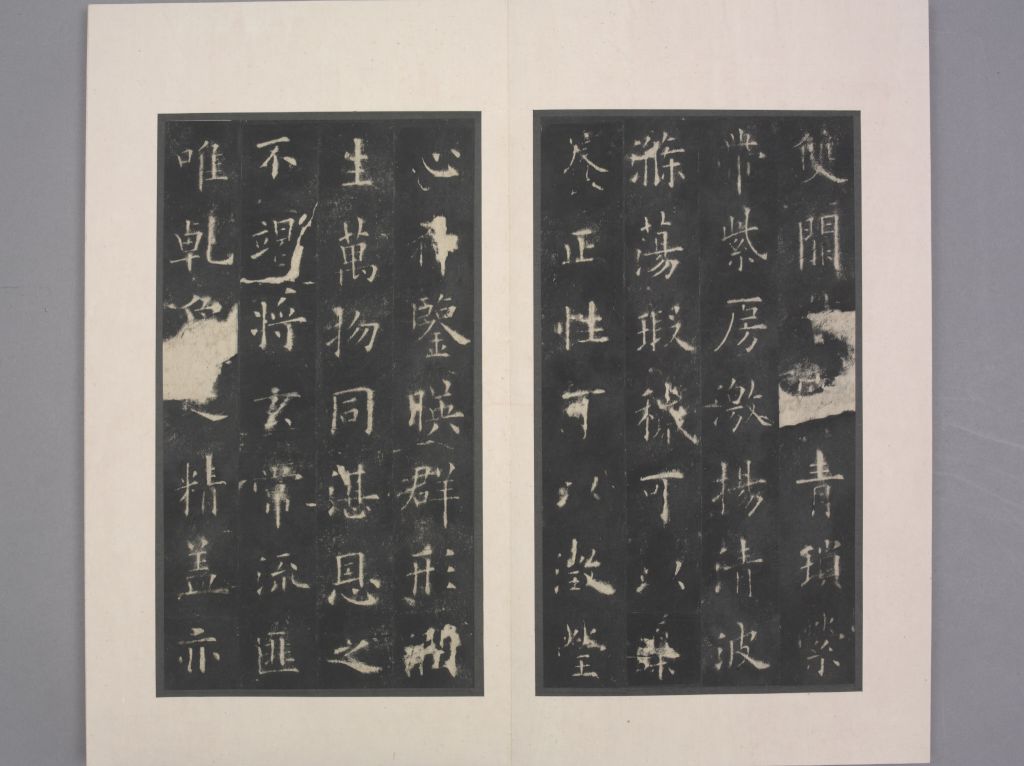 雙闕青瑣縈
帶紫房激揚清波
滌蕩瑕穢可以導
養正性可以澂瑩
心神鑒暎群形潤
生萬物同湛恩之
不竭將玄常流匪
唯乾象之精盖亦